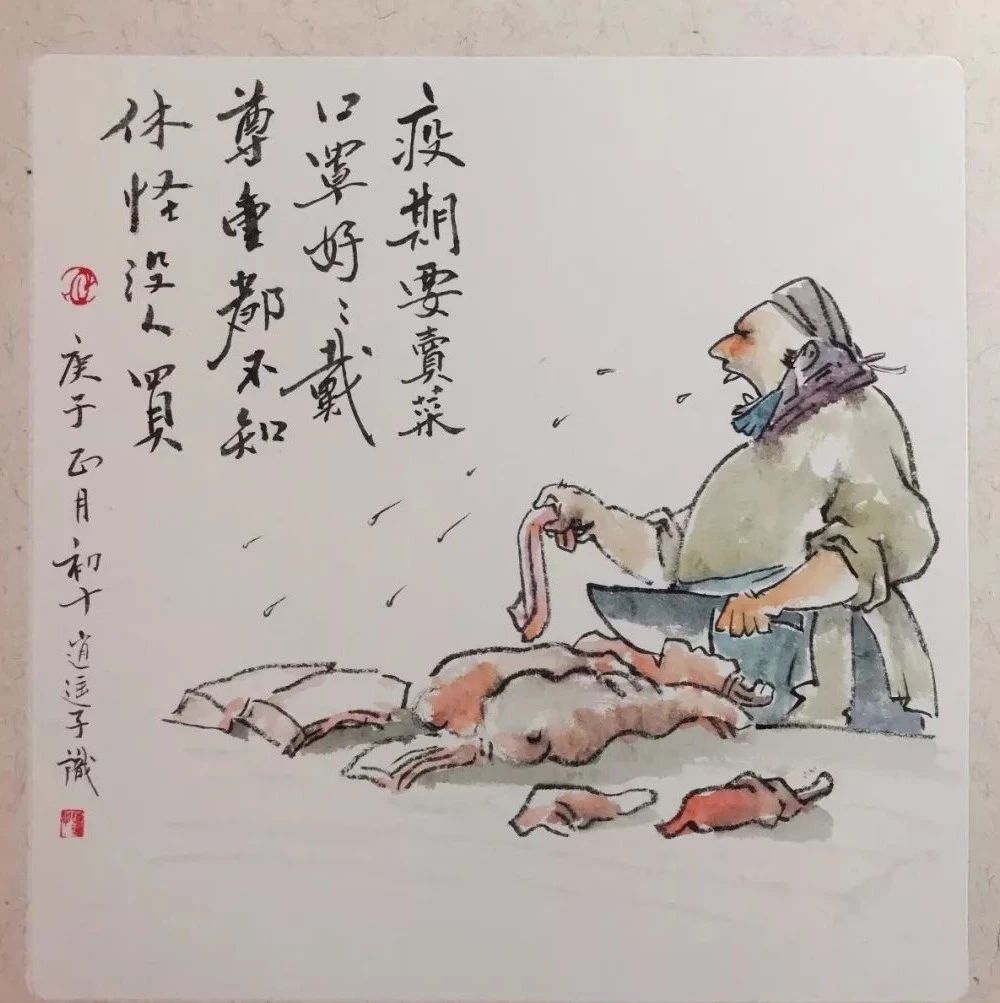 疫期要賣菜
口罩好〻戴
尊重都不知
休怪没人買
庚子正月初十逍遥子識